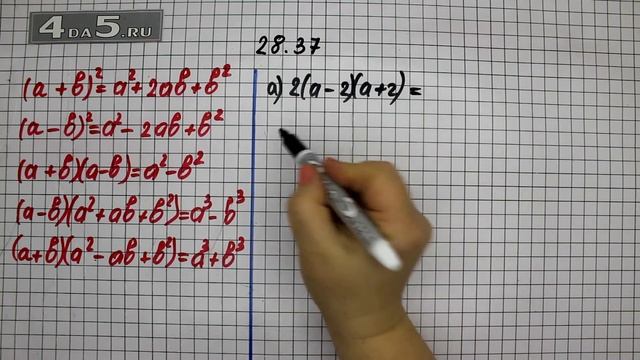 4DA5.RU
28.37
(a + b)² = a² + 2ab + b²
(a - b)² = a² - 2ab + b²
(a + b)(a - b) = a² - b²
(a - b)(a² + ab + b²) = a³ - b³
(a + b)(a² - ab + b²) = a³ + b³
а) 2(a - 2)(a + 2) =